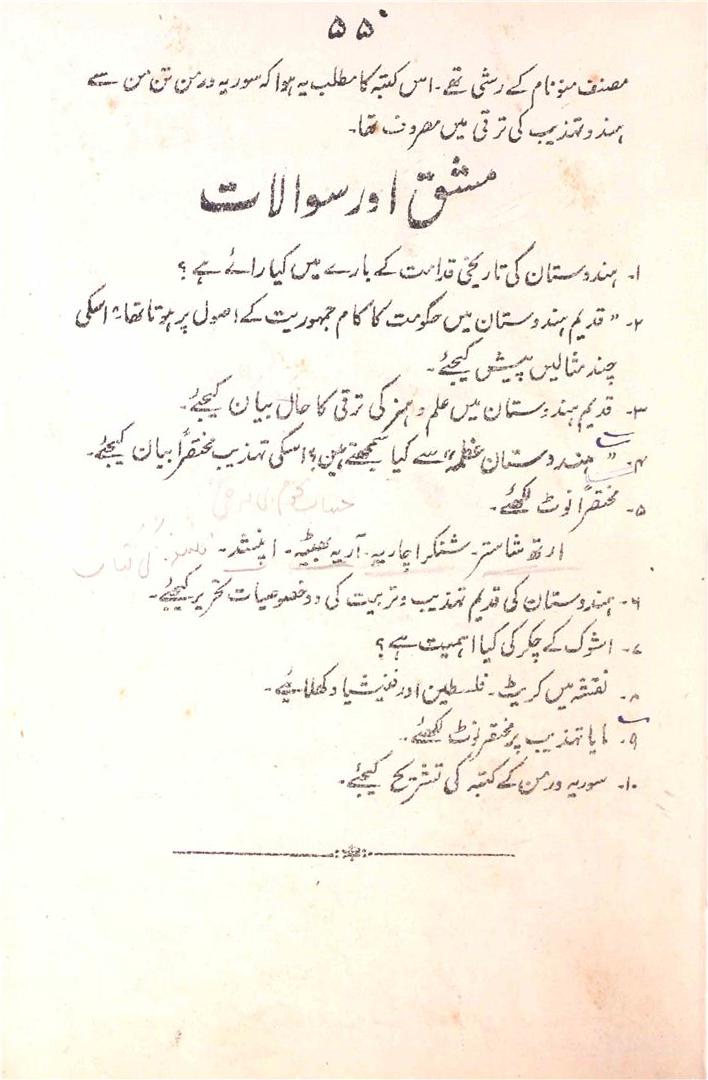 ۵۵
مصنف منو نام کے رشی تھے۔ اس کتبہ کا مطلب یہ ہوا کہ سوریہ ورمن تن من سے
ہندو تہذیب کی ترقی میں مصروف تھا۔
مشق اور سوالات
۱۔ ہندوستان کی تاریخی قدامت کے بارے میں کیا رائے ہے؟
۲۔ " قدیم ہندوستان میں حکومت کا کام جمہوریت کے اصول پر ہوتا تھا" اسکی
چند مثالیں پیش کیجئے۔
۳۔ قدیم ہندوستان میں علم و ہنر کی ترقی کا حال بیان کیجئے۔
۴۔ " ہندوستان عظمیٰ" سے کیا سمجھتے ہیں؟ اسکی تہذیب مختصراً بیان کیجئے۔
۵۔ مختصراً نوٹ لکھئے۔
ارتھ شاستر۔ شنکراچاریہ۔ آریہ بھٹیہ۔ اپنیشد۔
کی کتاب
۶۔ ہندوستان کی قدیم تہذیب و تربیت کی دو خصوصیات تحریر کیجئے۔
۷۔ اشوک کے چکر کی کیا اہمیت ہے؟
۸۔ نقشہ میں کریٹ۔ فلسطین اور فنیشیا دکھلائیے۔
۹۔ مایا تہذیب پر مختصر نوٹ لکھئے۔
۱۰۔ سوریہ ورمن کے کتبہ کی تشریح کیجئے۔